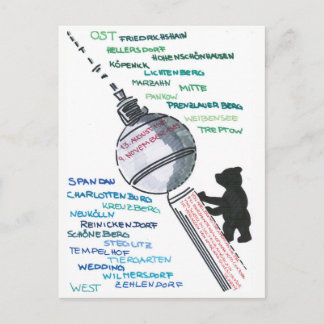 OST FRIEDRICHSHAIN
HELLERSDORF
HOHENSCHÖNHAUSEN
KÖPENICK
LICHTENBERG
MARZAHN MITTE
PANKOW
PRENZLAUER BERG
WEIßENSEE
TREPTOW
13. AUGUST 1961
9. NOVEMBER 1989
SPANDAU
CHARLOTTENBURG
KREUZBERG
NEUKÖLLN
REINICKENDORF
SCHÖNEBERG
STEGLITZ
TEMPELHOF
TIERGARTEN
WEDDING
WILMERSDORF
WEST ZEHLENDORF